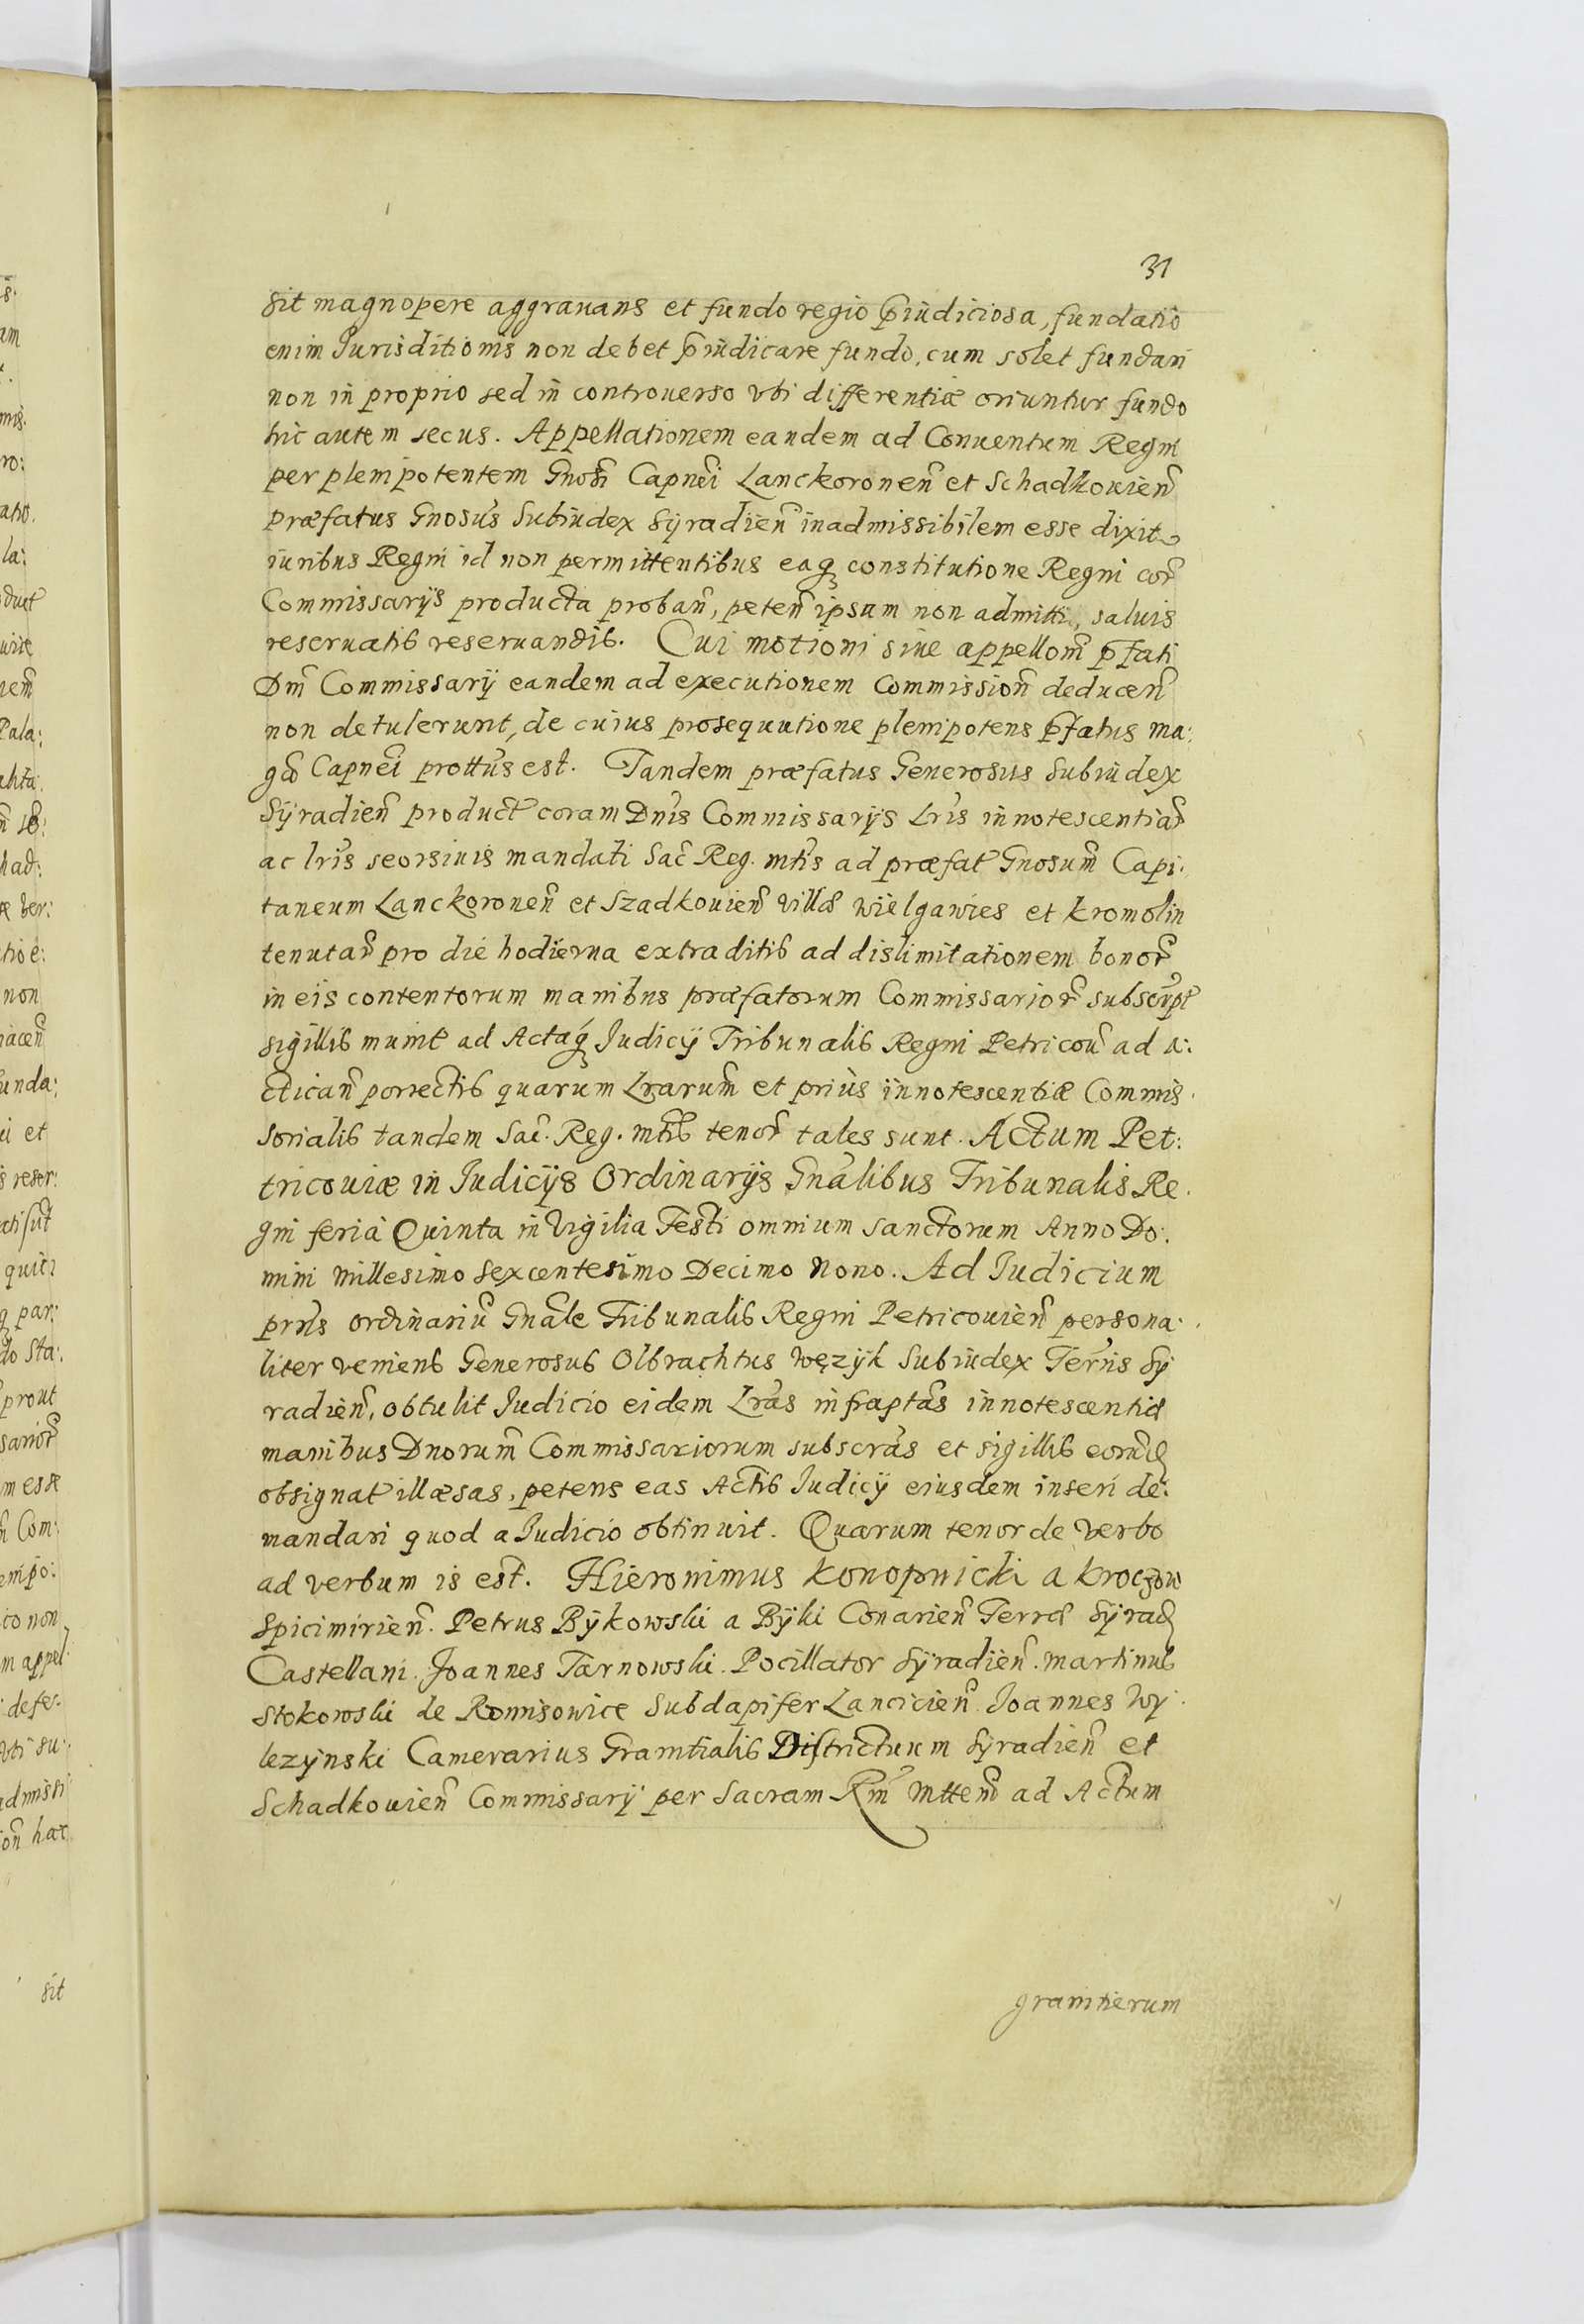 31
sit magnopere aggrauans et fundo regio p̃iudiciosa, fundatio
enim Jurisditionis non debet p̃iudicare fundo, cum solet fundari
non in proprio sed in controuerso vbi differentiæ oriuntur fundo
hic autem secus. Appellationem eandem ad Conuentum Regni
per plenipotentem Gnosi Capnei Lanckoronen̄ et Schadkouien̄
præfatus Gnosus Subiudex Syradien̄ inadmissibilem esse dixit
iuribus Regni id non permittentibus eaq; constitutione Regni cor̄
Commissarijs producta proban̄, peten̄ ipsum non admitti, saluis
reseruatis reseruandis. Cui motioni siue appellom̄ p̃fati
Dni Commissarij eandem ad executionem Commission̄ deducen̄
non detulerunt, de cuius prosequutione plenipotens p̃fatus ma:
gci Capnei prottus est. Tandem præfatus Generosus Subiudex
Syradien̄ product̄ coram Dnis Commissarijs Lris innotescentiar̄
ac lris seorsiuis mandati Sac̄ Reg. mtis ad præfat̄ Gnosum Capi:
taneum Lanckoronen̄ et Szadkouien̄ villæ Wielgawies et Kromolin
tenutar̄ pro die hodierna extraditis ad dislimitationem bonor̄
in eis contentorum manibus præfatorum Commissarior̄ subscript̄
sigillis munit̄ ad Actaq; Judicij Tribunalis Regni Petricou̅ ad a:
ctican̄ porrectis quarum Lrarum et prius innotescentiæ Commis:
sorialis tandem Sac. Reg. mtis tenor̄ tales sunt. Actum Pet:
tricouiæ in Judicijs Ordinarijs Gnalibus Tribunalis Re:
gni feria Quinta in Vigilia Festi omnium sanctorum Anno Do:
mini Millesimo Sexcentesimo Decimo Nono. Ad Judicium
prns ordinariu̅ Gnale Tribunalis Regni Petricouien̄ persona:
liter veniens Generosus Olbrachtus Wężyk Subiudex Terris Sy
radien̄, obtulit Judicio eidem Lras infraptas innotescentiæ
manibus Dnorum Commissariorum subscras et sigillis eorund
obsignat̄ illæsas, petens eas Actis Judicij eiusdem inseri de:
mandari quod a Judicio obtinuit. Quarum tenor de verbo
ad verbum is est. Hieronimus Konopnicki a Kroczow
Spicimirien̄. Petrus Bykowski a Byki Conarien̄ Terræ Syrad
Castellani. Joannes Tarnowski. Pocillator Syradien̄. Martinus
Stokowski de Romisowice Subdapifer Lancicien̄ Joannes Wy:
lezynski Camerarius Granitialis Districtuum Syradien̄ et
Schadkouien̄ Commissarij per Sacram Rm̄ Mttem̄ ad Actum
granitierum